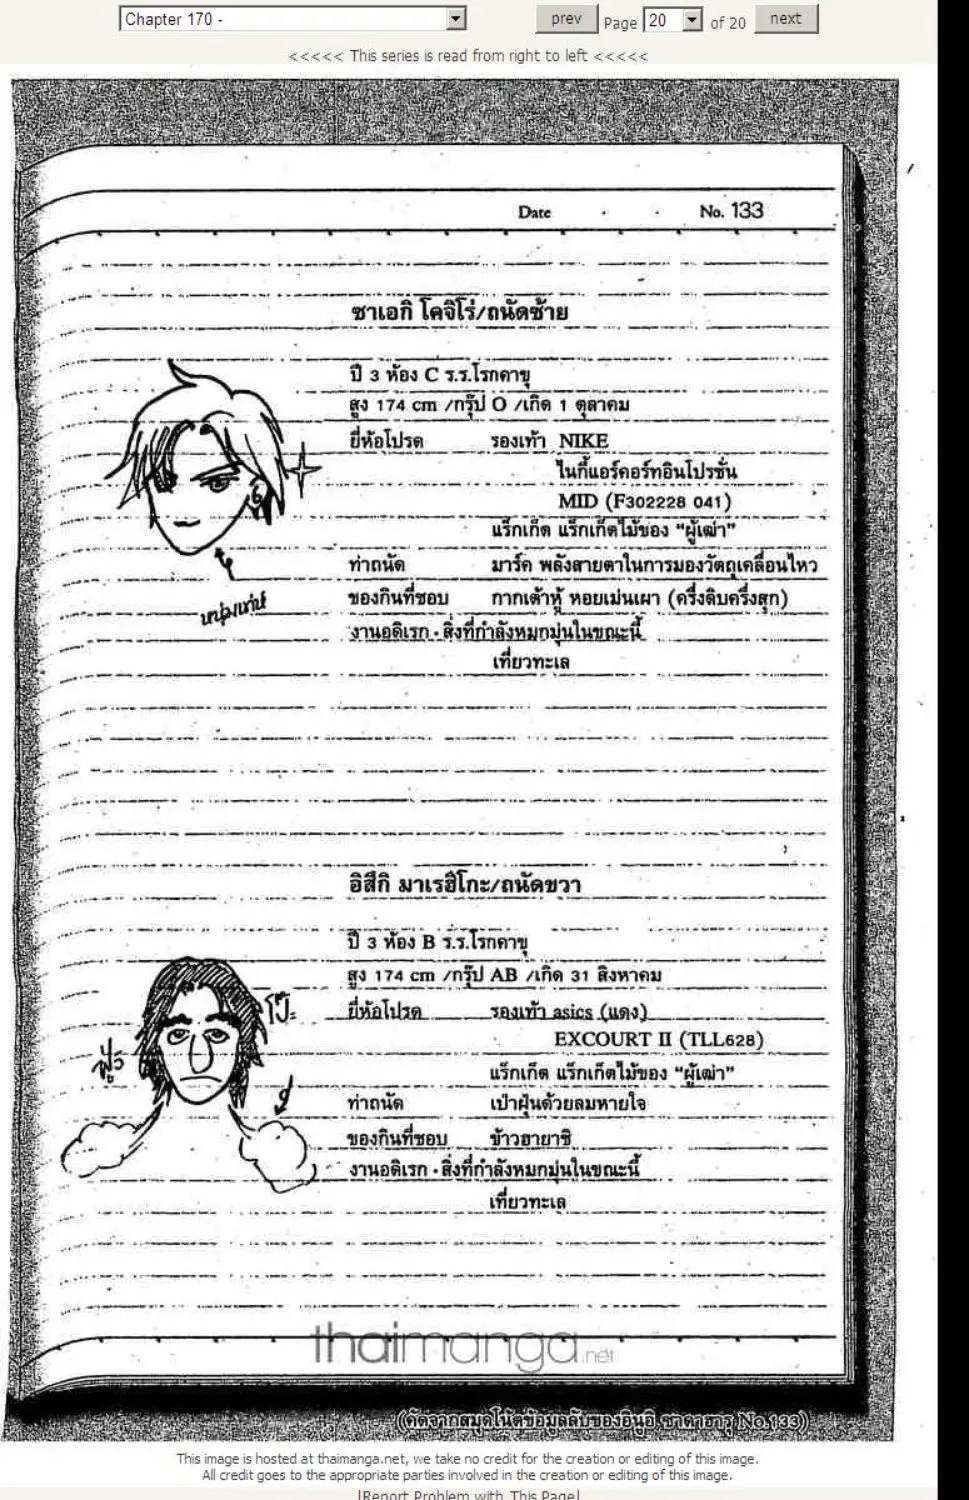 Chapter 170 -
prev Page 20 of 20 next
<<<<< This series is read from right to left <<<<<
Date . . No. 133
ซาเอกิ โคจิโร่/ถนัดซ้าย
ปี 3 ห้อง C ร.ร.โรกคาขุ
สูง 174 cm /กรุ๊ป O /เกิด 1 ตุลาคม
ยี่ห้อโปรด รองเท้า NIKE
ไนกี้แอร์คอร์ทอินโปรชั่น
MID (F302228 041)
แร็กเก็ต แร็กเก็ตไม้ของ “ผู้เฒ่า”
ท่าถนัด มาร์ค พลังสายตาในการมองวัตถุเคลื่อนไหว
ของกินที่ชอบ กากเต้าหู้ หอยเม่นเผา (ครึ่งดิบครึ่งสุก)
หนุ่มเท่ห์
งานอดิเรก · สิ่งที่กำลังหมกมุ่นในขณะนี้
เที่ยวทะเล
อิสึกิ มาเรฮิโกะ/ถนัดขวา
ปี 3 ห้อง B ร.ร.โรกคาขุ
สูง 174 cm /กรุ๊ป AB /เกิด 31 สิงหาคม
ยี่ห้อโปรด รองเท้า asics (แดง)
EXCOURT II (TLL628)
แร็กเก็ต แร็กเก็ตไม้ของ “ผู้เฒ่า”
ท่าถนัด เป่าฝุ่นด้วยลมหายใจ
ของกินที่ชอบ ข้าวฮายาชิ
งานอดิเรก · สิ่งที่กำลังหมกมุ่นในขณะนี้
เที่ยวทะเล
thaimanga.net
(คัดจากสมุดโน้ตข้อมูลลับของอินุอิ ซาดาฮารุ No.133)
This image is hosted at thaimanga.net, we take no credit for the creation or editing of this image.
All credit goes to the appropriate parties involved in the creation or editing of this image.
[Report Problem with This Page]